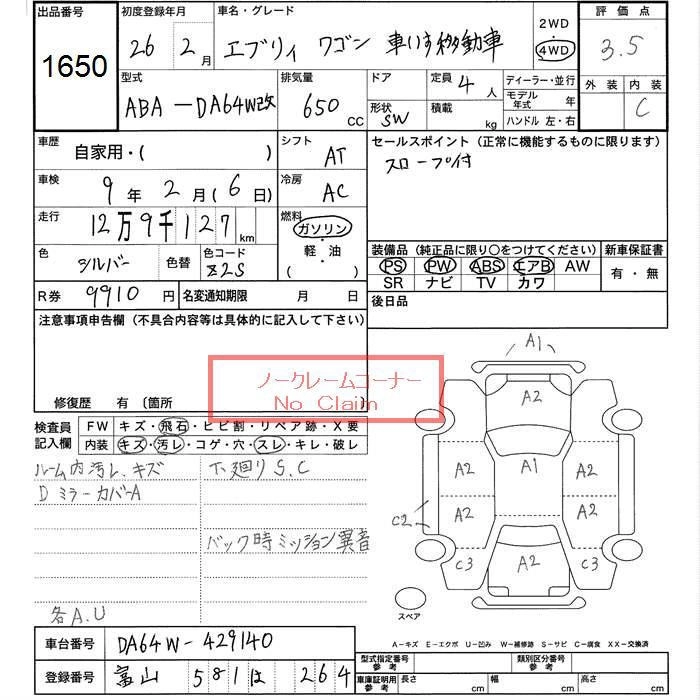 出品番号 初度登録年月 車名・グレード 2WD 評価点
1650 26 2月 エブリィ ワゴン 車いす移動車 4WD 3.5
型式 排気量 ドア 定員 4人 ディーラー・並行 外装 内装
ABA-DA64W改 650 cc 形状 SW 積載 kg モデル年式 年 C
ハンドル 左・右
車歴 自家用・( ) シフト AT セールスポイント (正常に機能するものに限ります)
車検 9年 2月 (6日) 冷房 AC スロープ付
走行 12万9千127 km 燃料 ガソリン・軽・油 ( )
色 シルバー 色替 色コード Z2S 装備品 (純正品に限り○をつけてください) 新車保証書
PS PW ABS エアB AW 有・無
R券 9910円 名変通知期限 月 日 SR ナビ TV カワ
後日品
注意事項申告欄 (不具合内容等は具体的に記入して下さい)
ノークレームコーナー
No Claim
修復歴 有 〔箇所 〕
検査員記入欄 FW キズ・飛石・ヒビ割・リペア跡・X要
内装 キズ・汚レ・コゲ・穴・スレ・キレ・破レ
ルーム内汚レ、キズ 下廻りS.C
DミラーカバーA
バック時ミッション異音
各A.U
A1
A2
A2 A1 A2
C2 A2 A2
C3 A2 C3
スペア
A-キズ E-エクボ U-凹み W-補修跡 S-サビ C-腐食 XX-交換済
車台番号 DA64W-429140
登録番号 富山 581 ほ 264
型式指定番号 参考 類別区分番号 参考
車庫証明用 参考 長さ cm 幅 cm 高さ cm